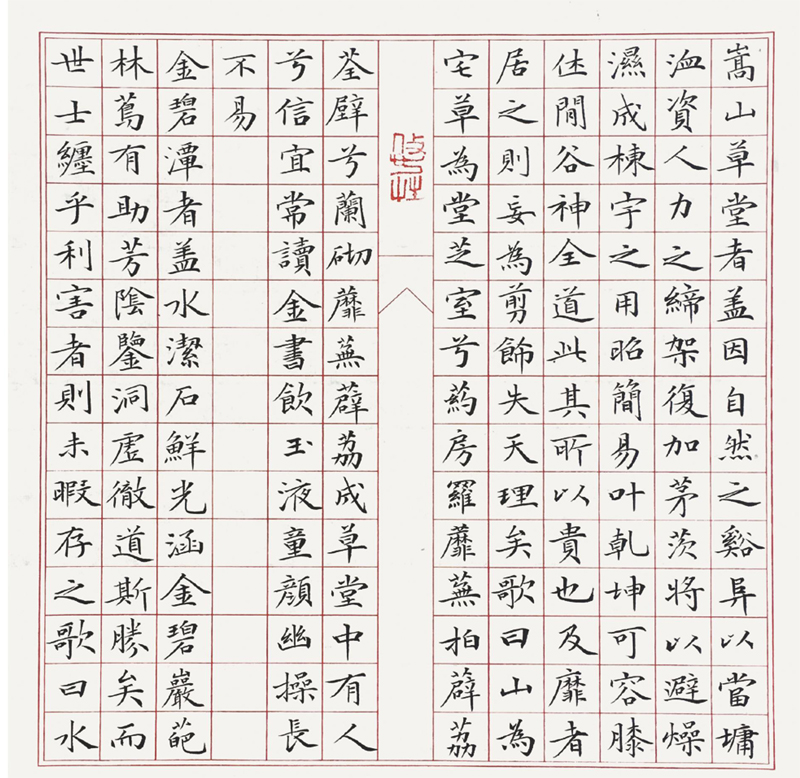 嵩山草堂者盖因自然之谿阜以當墉
洫資人力之締架復加茅茨將以避燥
濕成棟宇之用昭簡易叶乹坤可容膝
休閒谷神全道此其所以貴也及靡者
居之則妄為剪飾失天理矣歌曰山為
宅草為堂芝室兮葯房羅蘼蕪拍薜荔
荃壁兮蘭砌蘼蕪薜荔成草堂中有人
兮信宜常讀金書飲玉液童顏幽操長
不易
金碧潭者盖水潔石鮮光涵金碧巖葩
林蔦有助芳陰鑒洞虛徹道斯勝矣而
世士纏乎利害者則未暇存之歌曰水